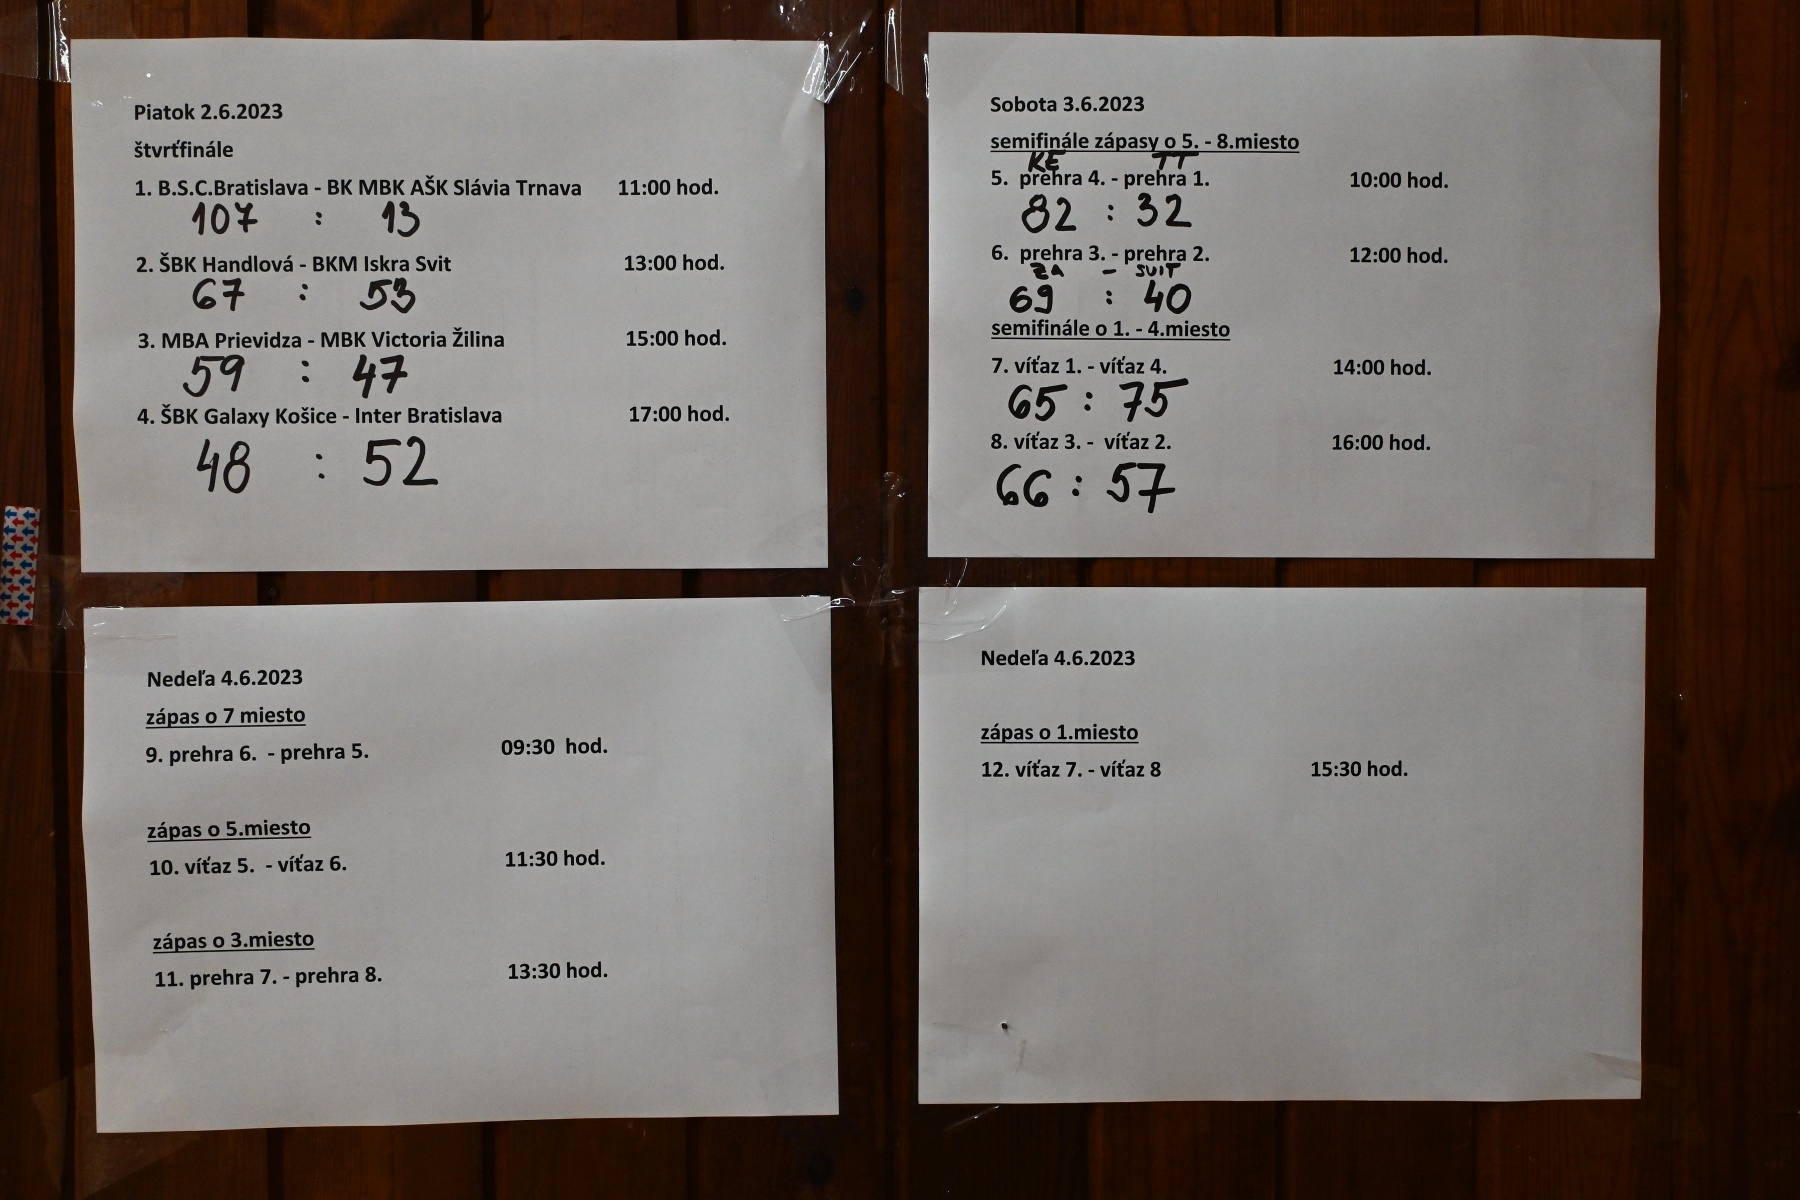 Piatok 2.6.2023
štvrťfinále
1. B.S.C.Bratislava - BK MBK AŠK Slávia Trnava 11:00 hod.
107 : 13
2. ŠBK Handlová - BKM Iskra Svit 13:00 hod.
67 : 53
3. MBA Prievidza - MBK Victoria Žilina 15:00 hod.
59 : 47
4. ŠBK Galaxy Košice - Inter Bratislava 17:00 hod.
48 : 52
Sobota 3.6.2023
semifinále zápasy o 5. - 8.miesto
KE TT
5. prehra 4. - prehra 1. 10:00 hod.
82 : 32
6. prehra 3. - prehra 2. 12:00 hod.
ZA - SVIT
69 : 40
semifinále o 1. - 4.miesto
7. víťaz 1. - víťaz 4. 14:00 hod.
65 : 75
8. víťaz 3. - víťaz 2. 16:00 hod.
66 : 57
Nedeľa 4.6.2023
zápas o 7 miesto
9. prehra 6. - prehra 5. 09:30 hod.
zápas o 5.miesto
10. víťaz 5. - víťaz 6. 11:30 hod.
zápas o 3.miesto
11. prehra 7. - prehra 8. 13:30 hod.
Nedeľa 4.6.2023
zápas o 1.miesto
12. víťaz 7. - víťaz 8 15:30 hod.